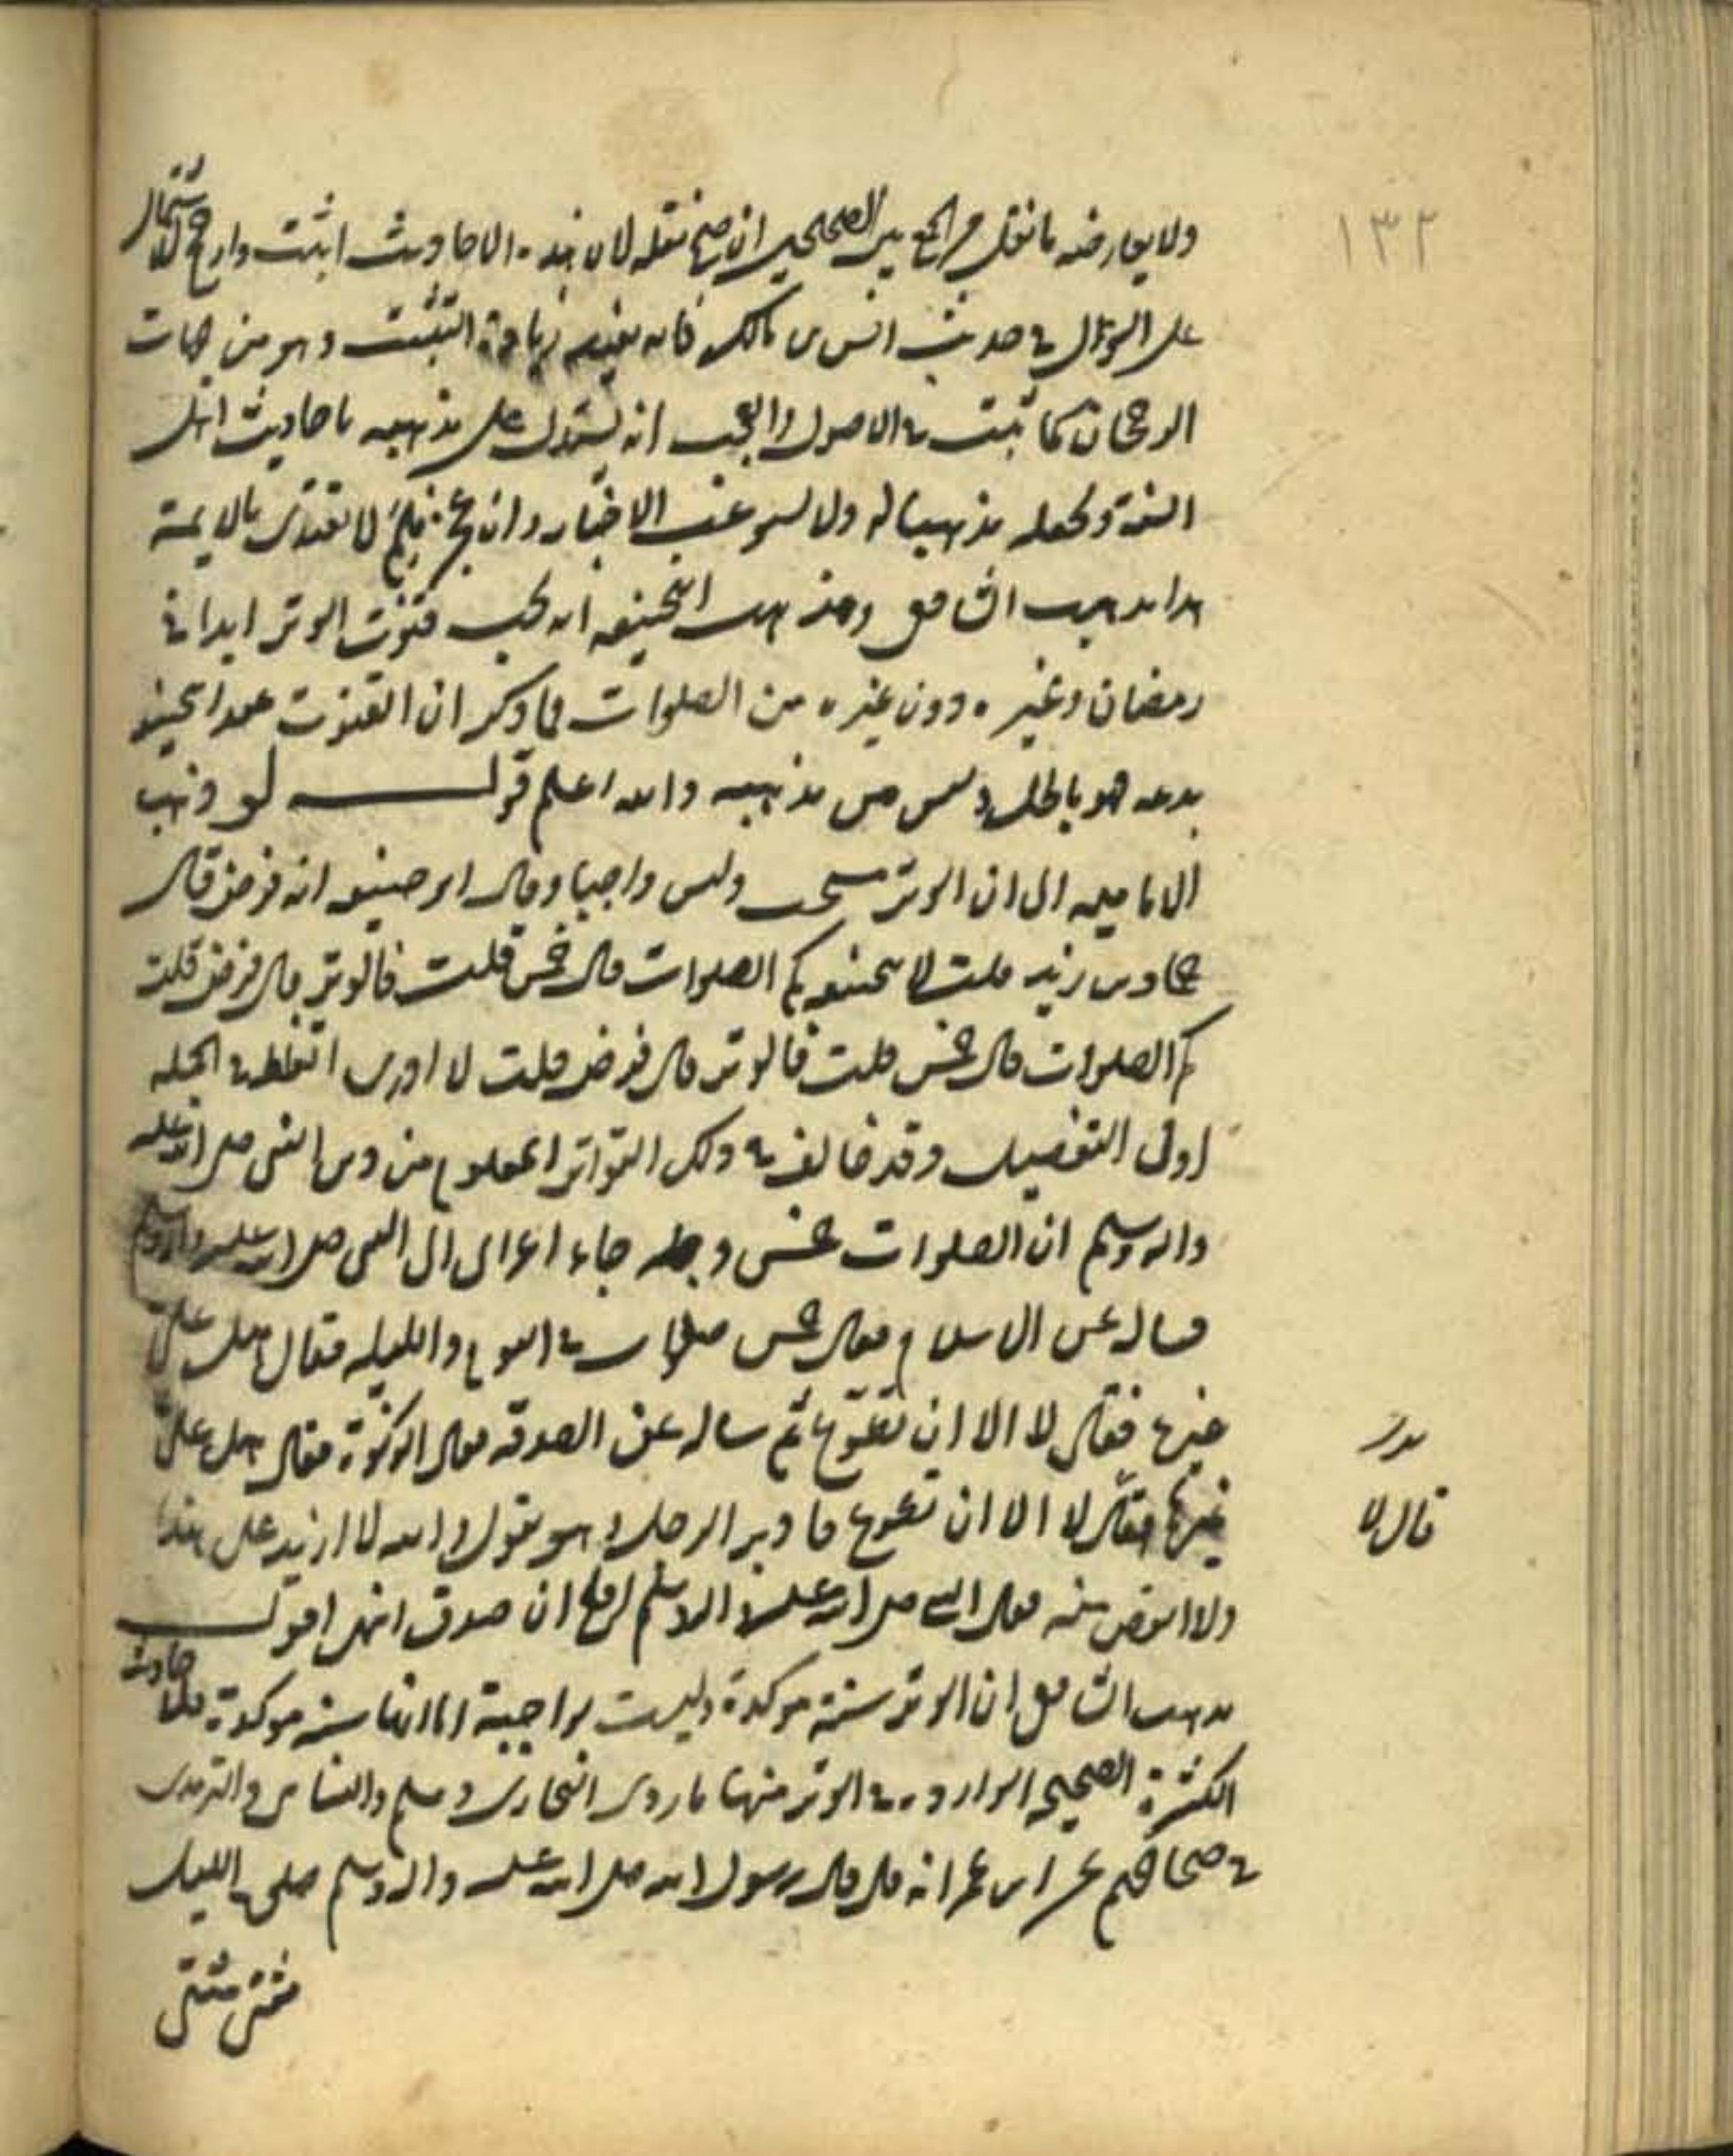 ١٣٢
ولا يعارضه ما نقل من الجمع بين الصحيحين ان صح نقله لان هذه الاحاديث اثبت وارجح لاشتمال
على السؤال في حديث انس بن مالك فانه يفيد زيادة التثبت وهو من جهات
الرجحان كما ثبت في الاصول والعجب انه يستدل على مذهبه باحاديث اهل
السنة ويجعله مذهبا له وان عجز فلم لا يقتدى بالايمة
هذا مذهب الشافعى ومذهب ابيحنيفه انه يجب قنوت الوتر ابدا في
رمضان وغيره دون غيره من الصلوات فما ذكر ان القنوت عند ابيحنيفه
بدعه فهو باطل وليس من مذهبه والله اعلم قولـــه لو ذهب
الاماميه الى ان الوتر مستحب وليس واجبا وقال ابو حنيفه انه فرض قال
حماد بن زيد قلت لابيحنيفه كم الصلوات قال خمس قلت فالوتر قال فرض قلت
كم الصلوات قال خمس قلت فالوتر قال فرض قلت لا ادرى اتغلط في الجمله
او فى التفصيل وقد خالف في ذلك التواتر المعلوم من دين النبى صلى الله عليه
واله وسلم ان الصلوات خمس جاء اعرابى الى النبى صلى الله عليه واله وسلم
فساله عن الاسلام فقال خمس صلوات في اليوم والليله فقال هل على
غيرها فقال لا الا ان تطوع ثم ساله عن الصدقه فقال الزكوة فقال هل على
غيرها فقال لا الا ان تطوع فادبر الرجل وهو يقول والله لا ازيد على هذا
قال لا
ولا انقص منه فقال النبى صلى الله عليه واله وسلم افلح ان صدق انتهى اقول
مذهب الشافعى ان الوتر سنة موكدة وليست بواجبة اما انها سنه موكدة فلاحاديث
الكثيرة الصحيحه الوارده في الوتر منها ما روى البخارى ومسلم والنسائى والترمدى
في صحاحهم عن ابن عمر انه قال قال رسول الله صلى الله عليه واله وسلم صلى الليل
مثنى مثنى